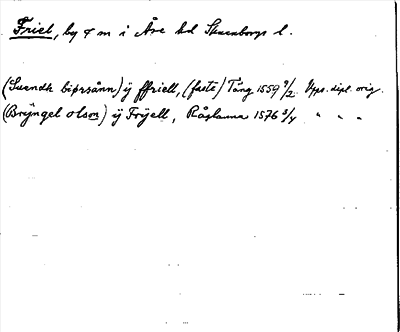 Friel, by o m i Åre hd Skaraborgs l.
(Suendh biørsånn) ÿ ffriell, (faste) Tång 1559 9/2 Upps. dipl. orig.
(Brÿngel olson) ÿ Frÿell, Råslanna 1576 3/4 " " "